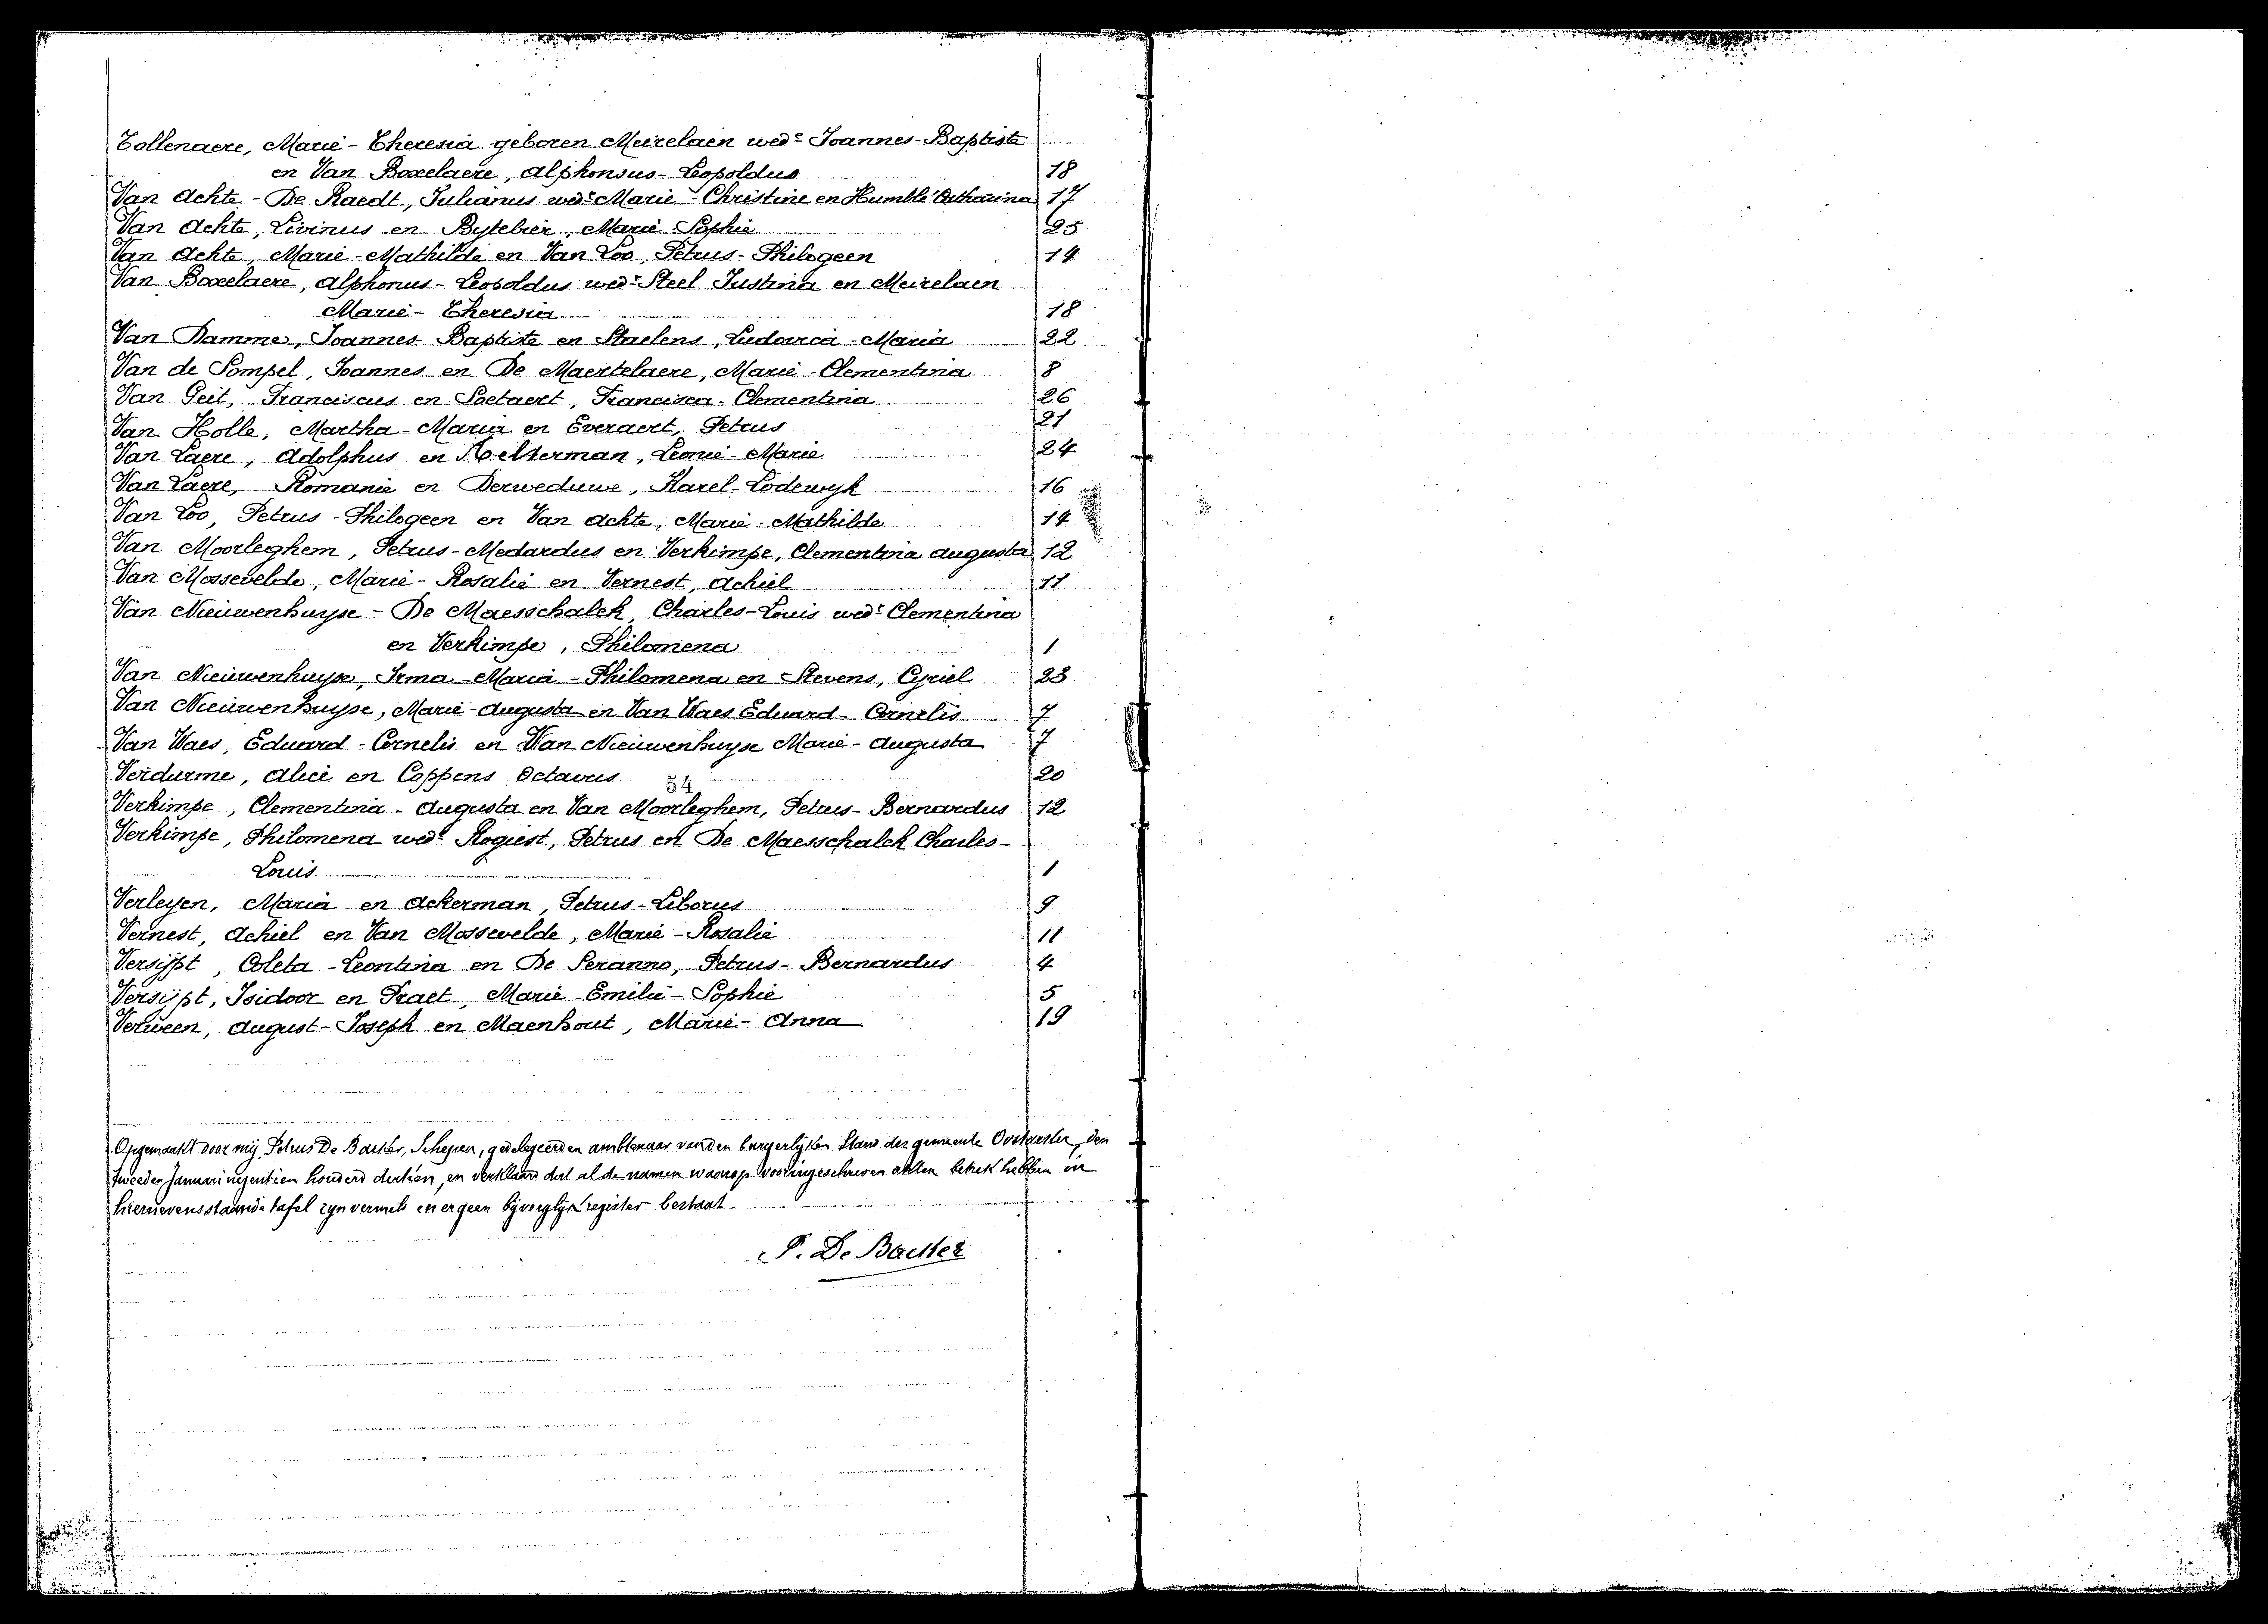 Tollenaere, Marie-Theresia geboren Meirelaen wede Joannes-Baptiste
en Van Boxelaere, Alphonsus-Leopoldus 18
Van Achte - De Raedt, Julianus wedr Marie-Christine en Humblé Catharina 17
Van Achte, Livinus en Bytebier, Marie Sophie 25
Van Achte, Marie-Mathilde en Van Loo, Petrus-Philogeen 14
Van Boxelaere, Alphonus-Leopoldus wedr Steel Justina en Meirelaen
Marie-Theresia 18
Van Damme, Joannes Baptiste en Staelens, Ludovica-Maria 22
Van de Sompel, Joannes en De Maertelaere, Marie-Clementina 8
Van Geit, Franciscus en Soetaert, Francisca-Clementina 26
Van Holle, Martha-Maria en Everaert, Petrus 21
Van Laere, Adolphus en Aelterman, Leonie-Marie 24
Van Laere, Romanie en Derweduwe, Karel-Lodewyk 16
Van Loo, Petrus-Philogeen en Van Achte, Marie-Mathilde 14
Van Moorleghem, Petrus-Medardus en Verkimpe, Clementina Augusta 12
Van Mossevelde, Marie-Rosalie en Vernest, Achiel 11
Van Nieuwenhuyse - De Maesschalck, Charles-Louis wedr Clementina
en Verkimpe, Philomena 1
Van Nieuwenhuyse, Irma-Maria-Philomena en Stevens, Cyriel 23
Van Nieuwenhuyse, Marie-Augusta en Van Waes Eduard-Cornelis 7
Van Waes, Eduard-Cornelis en Van Nieuwenhuyse Marie-Augusta 7
Verdurme, Alice en Coppens Octavus 20
54
Verkimpe, Clementina-Augusta en Van Moorleghem, Petrus-Bernardus 12
Verkimpe, Philomena wede Rogiest, Petrus en De Maesschalck Charles-
Louis 1
Verleyen, Maria en Ackerman, Petrus-Liborus 9
Vernest, Achiel en Van Mossevelde, Marie-Rosalie 11
Versijpt, Coleta-Leontina en De Seranno, Petrus-Bernardus 4
Versijpt, Isidoor en Praet, Marie Emilie-Sophie 5
Verween, August-Joseph en Maenhout, Marie-Anna 19
Opgemaakt door mij Petrus De Backer, Schepen, gedelegeerden ambtenaar van den burgerlijken Stand der gemeente Oostacker, den
tweeden Januari negentien honderd dertien, en verklaard dat al de namen waarop vooringeschreven akten betrek hebben in
hiernevensstaande tafel zyn vermeld en er geen bijvoeglijk register bestaat.
P. De Backer